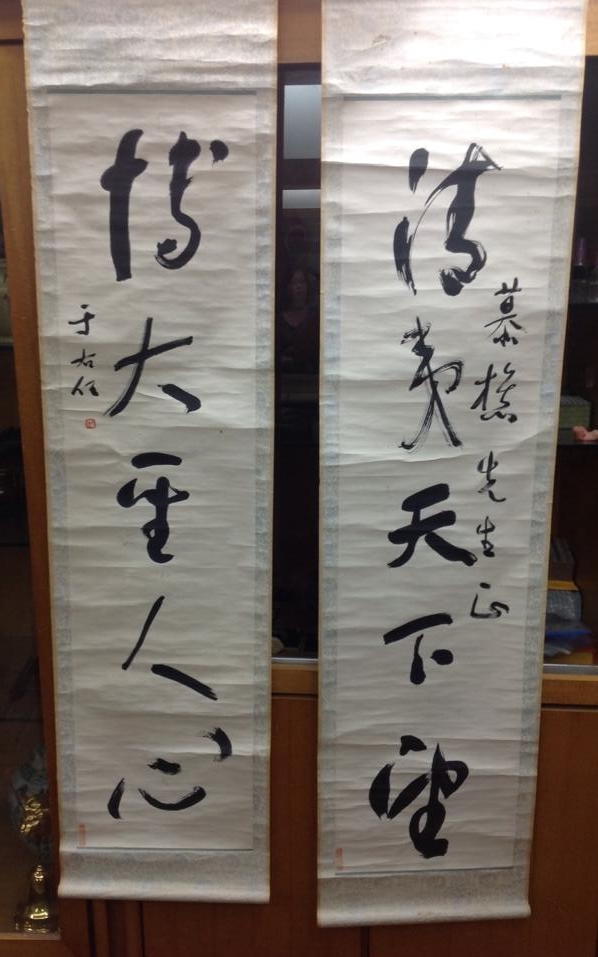 清夷天下望
慕樵先生正
博大聖人心
于右任